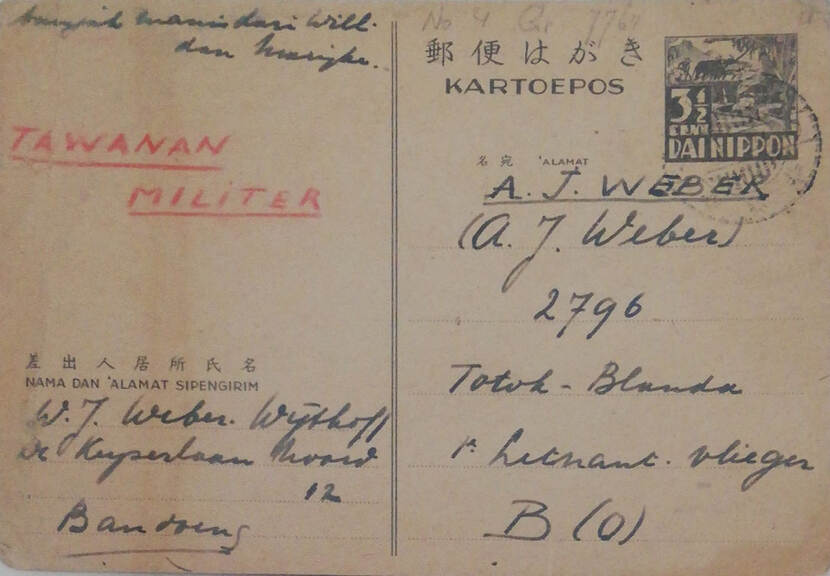 manis dari Will.
dan Marijke.
TAWANAN
MILITER
差出人居所氏名
NAMA DAN 'ALAMAT SIPENGIRIM
W. J. Weber. Wijthoff
De Keyserlaan Noord
12
Bandoeng
No 4
郵便はがき
KARTOEPOS
3 1/2
CENT
DAI NIPPON
名宛 'ALAMAT
A. J. WEBER
(A. J. Weber)
2796
Totok - Blanda
1e Letnant. vlieger
B (O)